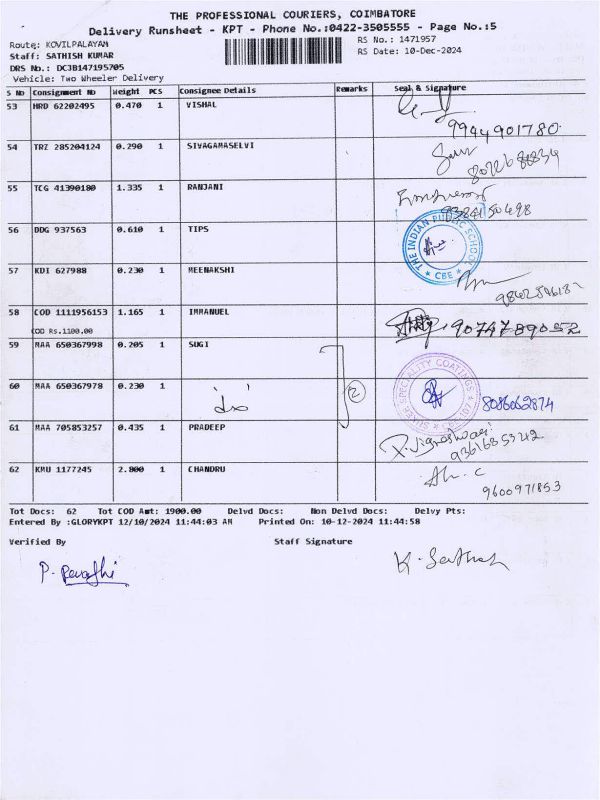 THE PROFESSIONAL COURIERS, COIMBATORE
Delivery Runsheet - KPT - Phone No.:0422-3505555 - Page No.:5
Route: KOVILPALAYAM
RS No.: 1471957
Staff: SATHISH KUMAR
RS Date: 10-Dec-2024
DRS No.: DCJB147195705
Vehicle: Two Wheeler Delivery
S No Consignment No Weight PCS Consignee Details Remarks Seal & Signature
53 HRD 62202495 0.470 1 VISHAL
9944901780
54 TRZ 285204124 0.290 1 SIVAGAMASELVI
55 TCG 41390180 1.335 1 RANJANI
56 DDG 937563 0.610 1 TIPS
THE INDIAN PUBLIC SCHOOL
* CBE *
57 KDI 627988 0.230 1 MEENAKSHI
58 COD 1111956153 1.165 1 IMMANUEL
COD Rs.1100.00
9074789052
59 MAA 650367998 0.205 1 SUGI
2
60 MAA 650367978 0.230 1
SPECIALITY COATINGS
8086062874
61 MAA 705853257 0.435 1 PRADEEP
62 KMU 1177245 2.800 1 CHANDRU
9600971853
Tot Docs: 62 Tot COD Amt: 1900.00 Delvd Docs: Non Delvd Docs: Delvy Pts:
Entered By :GLORYKPT 12/10/2024 11:44:03 AM Printed On: 10-12-2024 11:44:58
Verified By Staff Signature